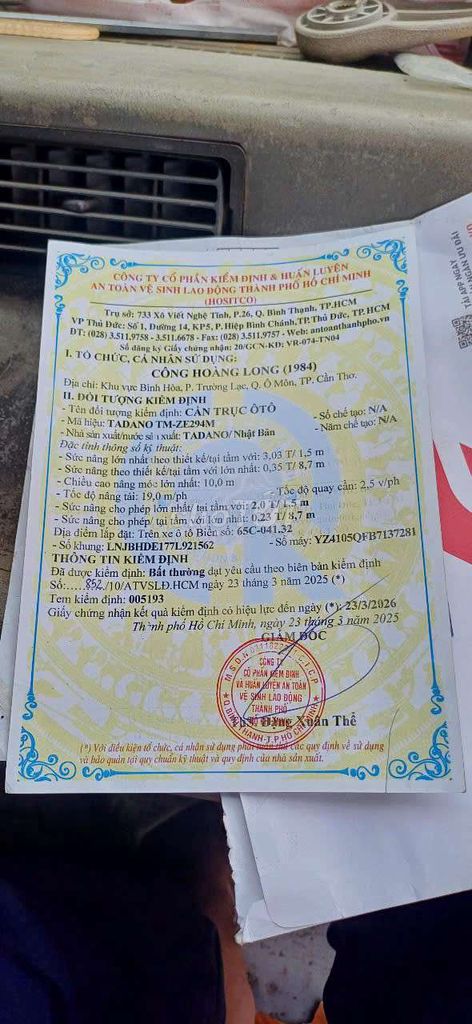 CÔNG TY CỔ PHẦN KIỂM ĐỊNH & HUẤN LUYỆN
AN TOÀN VỆ SINH LAO ĐỘNG THÀNH PHỐ HỒ CHÍ MINH
(HOSITCO)
Trụ sở: 733 Xô Viết Nghệ Tĩnh, P.26, Q. Bình Thạnh, TP.HCM
VP Thủ Đức: Số 1, Đường 14, KP5, P. Hiệp Bình Chánh, TP.Thủ Đức, TP.HCM
ĐT: (028) 3.511.9758 - 3.511.6678 - Fax: (028) 3.511.9757 - Web: antoanthanhpho.vn
Số đăng ký Giấy chứng nhận: 20/GCN-KĐ: VR-074-TN04
I. TỔ CHỨC, CÁ NHÂN SỬ DỤNG:
CÔNG HOÀNG LONG (1984)
Địa chỉ: Khu vực Bình Hòa, P. Trường Lạc, Q. Ô Môn, TP. Cần Thơ.
II. ĐỐI TƯỢNG KIỂM ĐỊNH
- Tên đối tượng kiểm định: CẦN TRỤC ÔTÔ - Số chế tạo: N/A
- Mã hiệu: TADANO TM-ZE294M - Năm chế tạo: N/A
- Nhà sản xuất/nước sản xuất: TADANO/ Nhật Bản
Đặc tính thông số kỹ thuật:
- Sức nâng lớn nhất theo thiết kế/tại tầm với: 3,03 T/ 1,5 m
- Sức nâng theo thiết kế/tại tầm với lớn nhất: 0,35 T/ 8,7 m
- Chiều cao nâng móc lớn nhất: 10,0 m
- Tốc độ nâng tải: 19,0 m/ph Tốc độ quay cần: 2,5 v/ph
- Sức nâng cho phép lớn nhất/ tại tầm với: 2,0 T/ 1,5 m
- Sức nâng cho phép/ tại tầm với lớn nhất: 0,23 T/ 8,7 m
Địa điểm lắp đặt: Trên xe ô tô Biển số: 65C-041.32
- Số khung: LNJBHDE177L921562 - Số máy: YZ4105QFB7137281
THÔNG TIN KIỂM ĐỊNH
Đã được kiểm định: Bất thường đạt yêu cầu theo biên bản kiểm định
Số: 852 /10/ATVSLĐ.HCM ngày 23 tháng 3 năm 2025 (*)
Tem kiểm định: 005193
Giấy chứng nhận kết quả kiểm định có hiệu lực đến ngày (*): 23/3/2026
Thành phố Hồ Chí Minh, ngày 23 tháng 3 năm 2025
GIÁM ĐỐC
CÔNG TY
CỔ PHẦN KIỂM ĐỊNH
VÀ HUẤN LUYỆN AN TOÀN
VỆ SINH LAO ĐỘNG
THÀNH PHỐ
HỒ CHÍ MINH
Đặng Xuân Thế
(*) Với điều kiện tổ chức, cá nhân sử dụng phải tuân thủ các quy định về sử dụng
và bảo quản tại quy chuẩn kỹ thuật và quy định của nhà sản xuất.